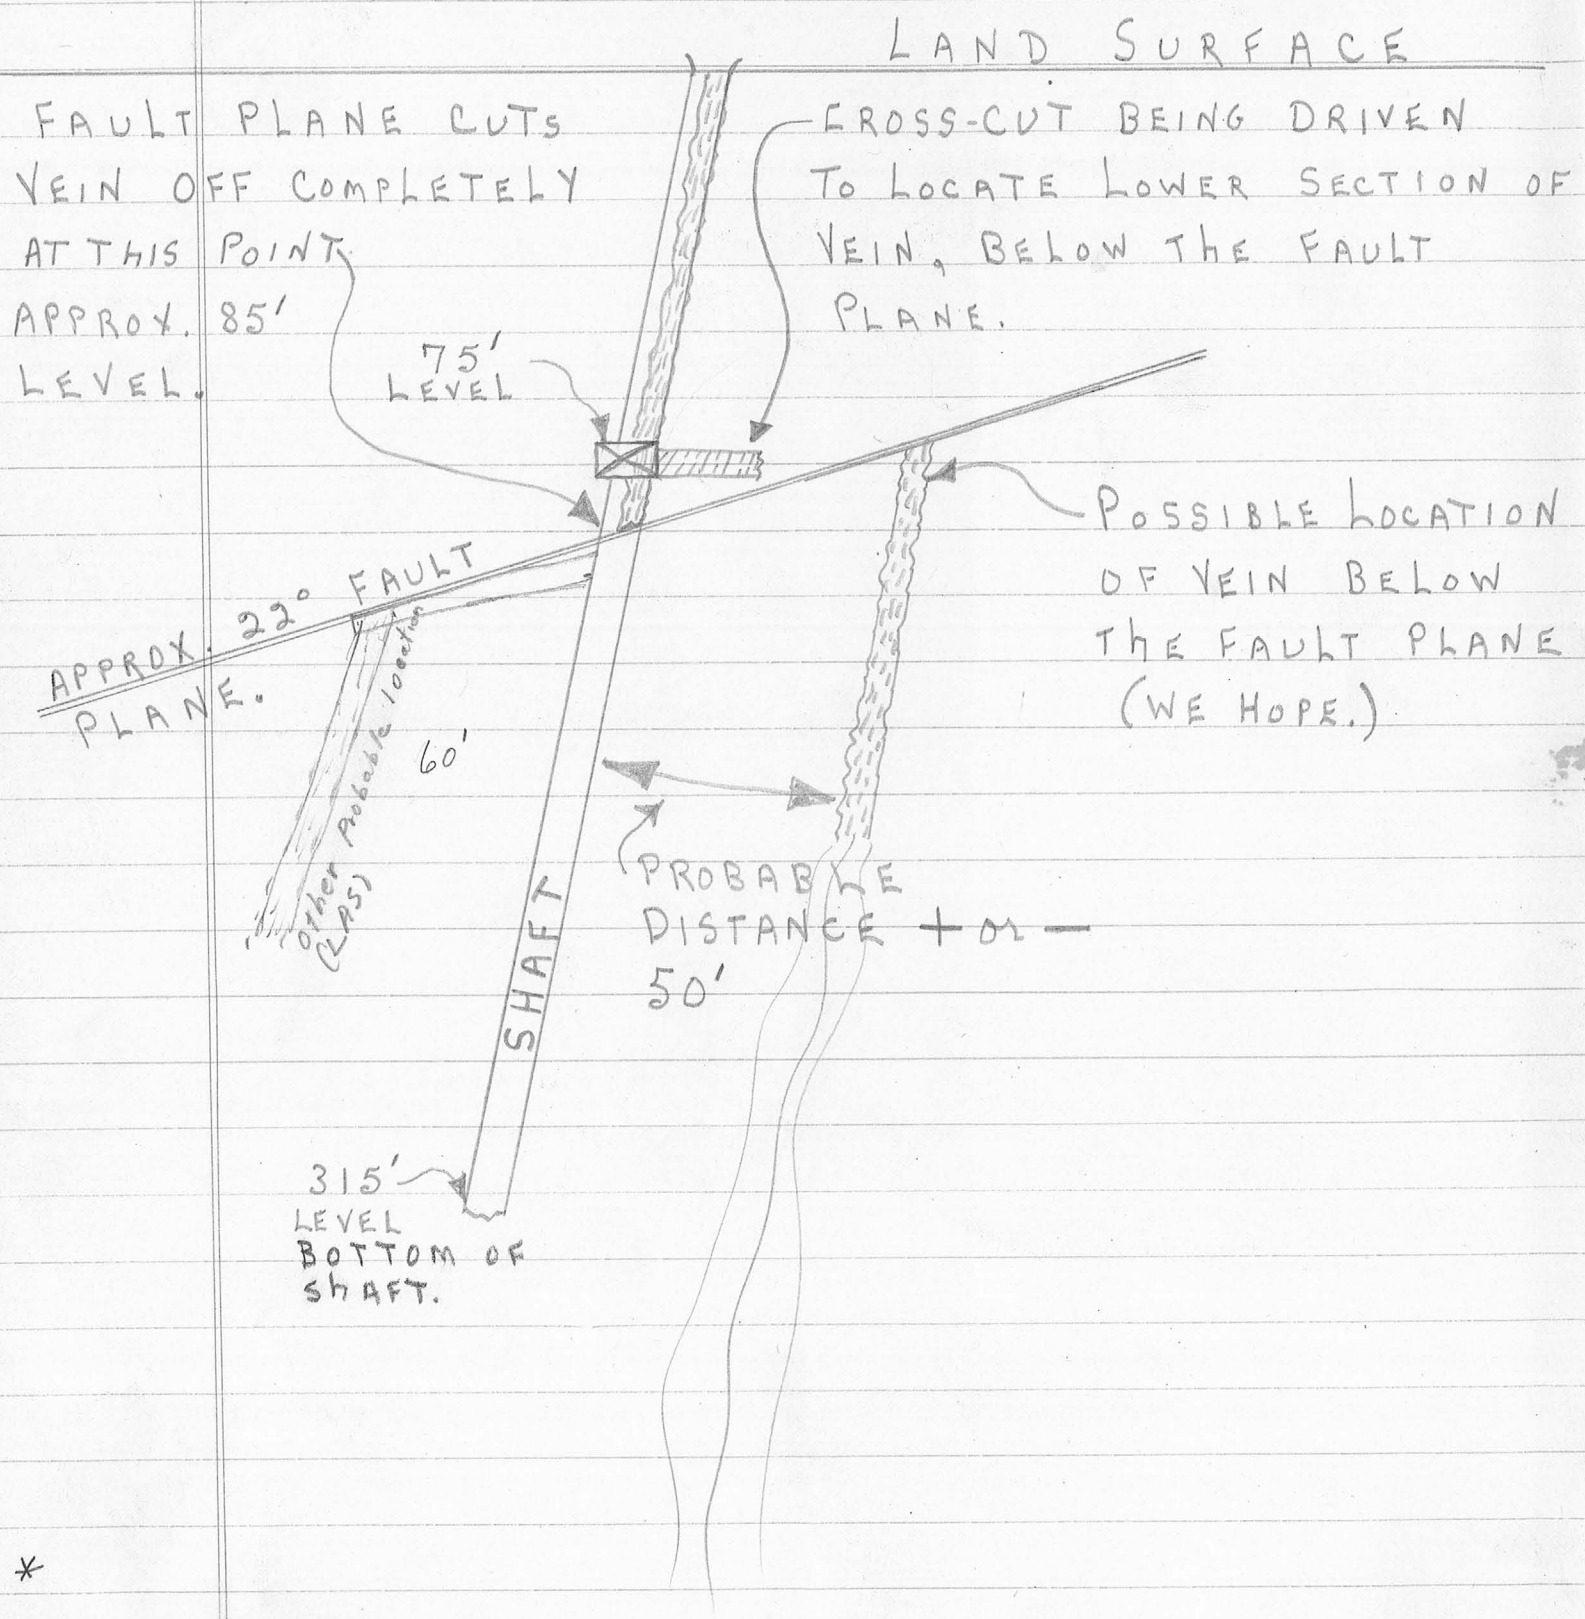 LAND SURFACE
FAULT PLANE CUTS
VEIN OFF COMPLETELY
AT THIS POINT
APPROX. 85'
LEVEL.
CROSS-CUT BEING DRIVEN
TO LOCATE LOWER SECTION OF
VEIN, BELOW THE FAULT
PLANE.
75'
LEVEL
APPROX. 22° FAULT
PLANE.
POSSIBLE LOCATION
OF VEIN BELOW
THE FAULT PLANE
(WE HOPE.)
Other Probable location
(LAS)
60'
PROBABLE
DISTANCE + or -
50'
SHAFT
315'
LEVEL
BOTTOM OF
SHAFT.
*